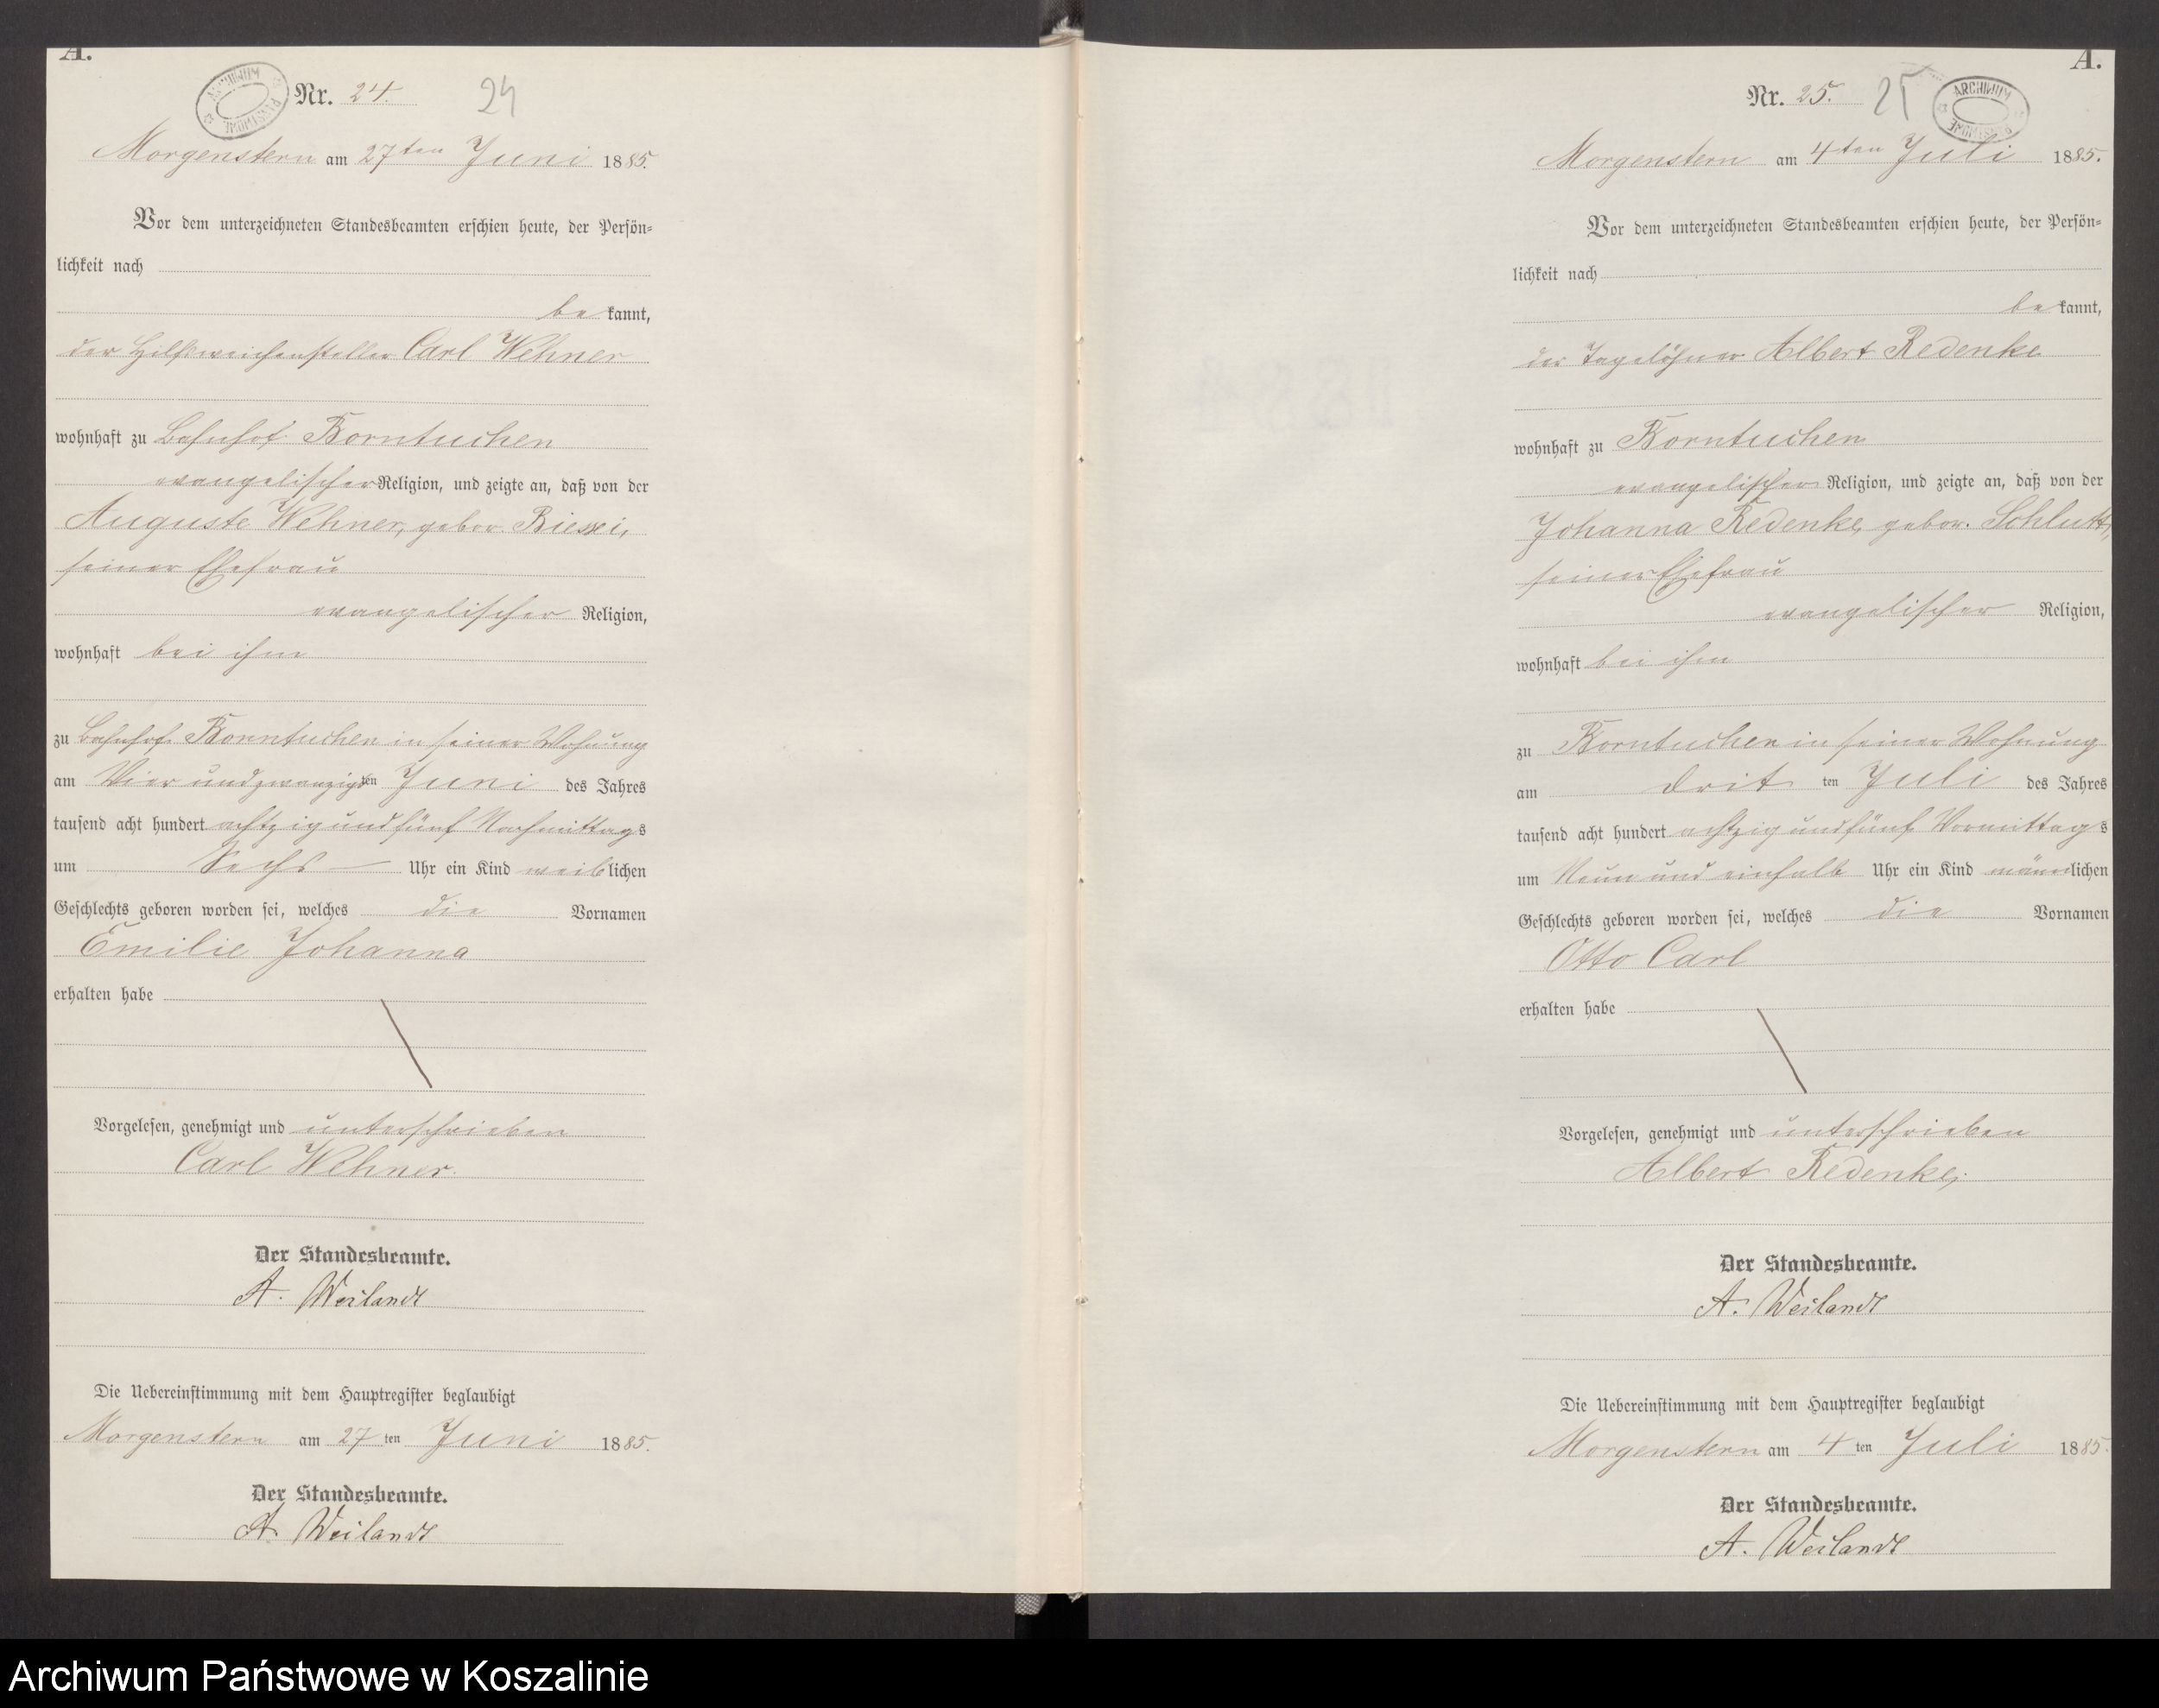 A.
ARCHIWUM PAŃSTWOWE
Nr. 24. 24
Morgenstern am 27ten Juni 1885.
Vor dem unterzeichneten Standesbeamten erschien heute, der Persön-
lichkeit nach
be kannt,
der Hilfsweichensteller Carl Wehner
wohnhaft zu Bahnhof Borntuchen
evangelischer Religion, und zeigte an, daß von der
Auguste Wehner, gebor.
seiner Ehefrau
evangelischer Religion,
wohnhaft bei ihm
zu Bahnhof Borntuchen in seiner Wohnung
am Vier und zwanzigsten Juni des Jahres
tausend acht hundert achtzig und fünf Nachmittags
um Sechs Uhr ein Kind weiblichen
Geschlechts geboren worden sei, welches die Vornamen
Emilie Johanna
erhalten habe
Vorgelesen, genehmigt und unterschrieben
Carl Wehner.
Der Standesbeamte.
A. Weilandt
Die Uebereinstimmung mit dem Hauptregister beglaubigt
Morgenstern am 27 ten Juni 1885.
Der Standesbeamte.
A. Weilandt
A.
Nr. 25. 25
ARCHIWUM PAŃSTWOWE
Morgenstern am 4ten Juli 1885.
Vor dem unterzeichneten Standesbeamten erschien heute, der Persön-
lichkeit nach
be kannt,
der Tagelöhner Albert Redenke
wohnhaft zu Borntuchen
evangelischer Religion, und zeigte an, daß von der
Johanna Redenke, gebor. Schlutt,
seiner Ehefrau
evangelischer Religion,
wohnhaft bei ihm
zu Borntuchen in seiner Wohnung
am drit ten Juli des Jahres
tausend acht hundert achtzig und fünf Vormittags
um Neun und einhalb Uhr ein Kind männlichen
Geschlechts geboren worden sei, welches die Vornamen
Otto Carl
erhalten habe
Vorgelesen, genehmigt und unterschrieben
Albert Redenke,
Der Standesbeamte.
A. Weilandt
Die Uebereinstimmung mit dem Hauptregister beglaubigt
Morgenstern am 4 ten Juli 1885.
Der Standesbeamte.
A. Weilandt
Archiwum Państwowe w Koszalinie